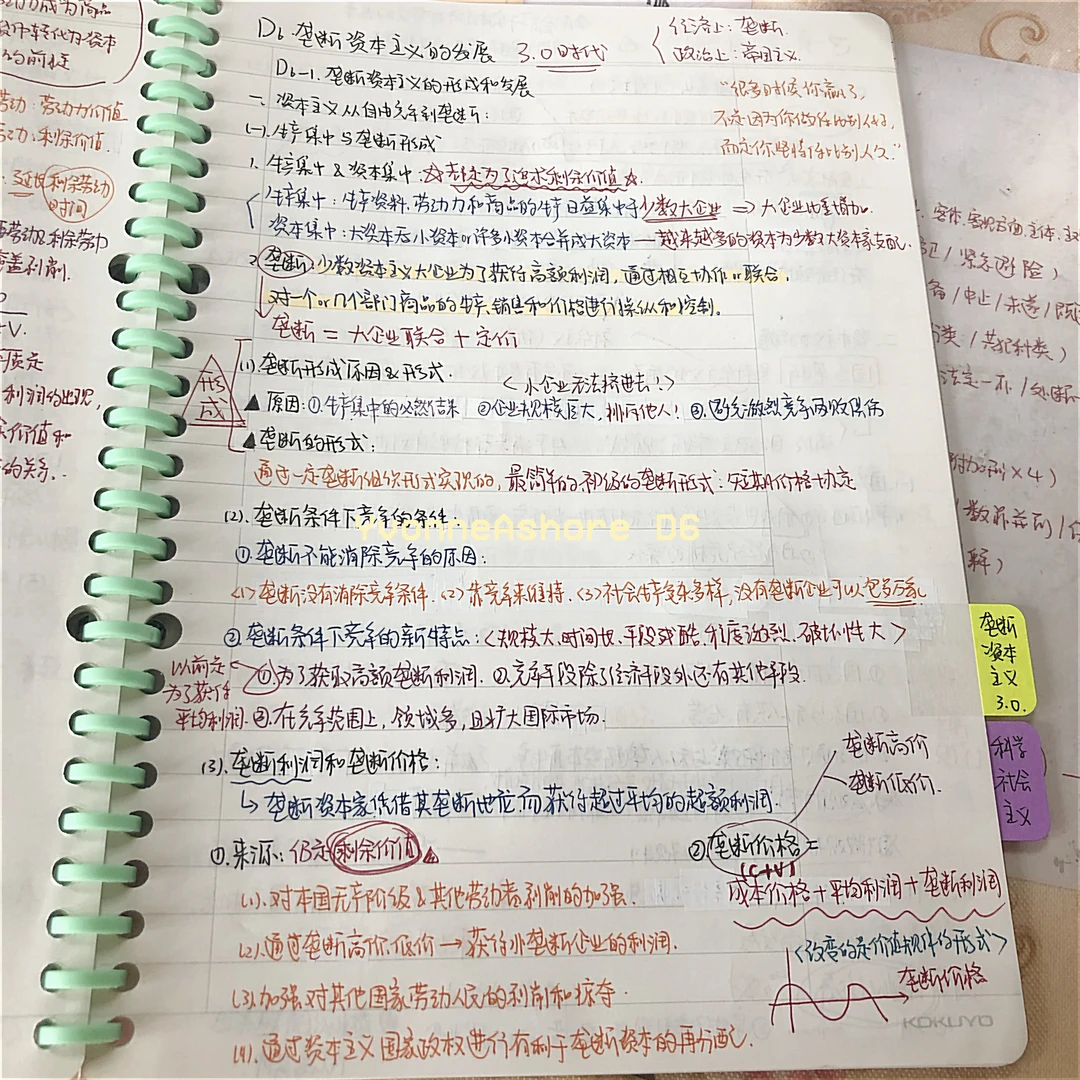 D6. 垄断资本主义的发展 3.0时代
经济上: 垄断.
政治上: 帝国主义.
D6-1. 垄断资本主义的形成和发展
"很多时候你赢了,
不是因为你做得比别人好,
而是你坚持得比别人久."
一. 资本主义从自由竞争到垄断:
(一). 生产集中与垄断形成
1. 生产集中 & 资本集中: ☆老是为了追求剩余价值☆.
生产集中: 生产资料, 劳动力和商品的生产日益集中于少数大企业 ⇒ 大企业比重增加.
资本集中: 大资本吞小资本or许多小资本合并成大资本 — 越来越多的资本为少数大资本家支配.
2. 垄断: 少数资本主义大企业为了获得高额利润, 通过相互协作or联合,
对一个or几个部门商品的生产、销售和价格进行操纵和控制.
垄断 = 大企业联合 + 定价
形成
(1). 垄断形成原因&形式.
<小企业无法挤进去!>
▲ 原因: ①生产集中的必然结果 ②企业规模巨大, 排斥他人! ③避免激烈竞争两败俱伤
▲ 垄断的形式:
通过一定垄断组织形式实现的, 最简单的初级的垄断形式: 短期价格协定
(2). 垄断条件下竞争的条件:
YvonneAshore D6
① 垄断不能消除竞争的原因:
<1> 垄断没有消除竞争条件. <2> 靠竞争来维持. <3> 社会生产复杂多样, 没有垄断企业可以包罗万象
② 垄断条件下竞争的新特点: <规模大. 时间长. 手段残酷. 程度激烈. 破坏性大>
以前是
为了获得
平均利润.
① 为了获取高额垄断利润. ② 竞争手段除了经济手段外还有其他手段.
③ 在竞争范围上, 领域多, 且扩大国际市场.
(3). 垄断利润和垄断价格:
↳ 垄断资本家凭借其垄断地位而获得超过平均的超额利润.
垄断高价
垄断低价.
①. 来源: 仍是剩余价值
②垄断价格=
(C+V)
成本价格+平均利润+垄断利润
<1>. 对本国无产阶级&其他劳动者剥削的加强.
<2>. 通过垄断高价低价 → 获得小垄断企业的利润.
<改变的是价值规律的形式>
垄断价格
<3>. 加强对其他国家劳动人民的剥削和掠夺.
<4>. 通过资本主义国家政权进行有利于垄断资本的再分配.
KOKUYO
垄断
资本
主义
3.0.
科学
社会
主义
成为商品
转化为资本
的前提
劳动: 劳动力价值
劳动: 剩余价值
延长剩余劳动
时间
剩余劳动
剥削.
质定
利润的出现,
价值和
的关系.
客体. 客观方面. 主体.
/ 紧急避险)
/ 中止 / 未遂 /
类 / 共犯种类)
× 4)
数罪并罚 /
解)